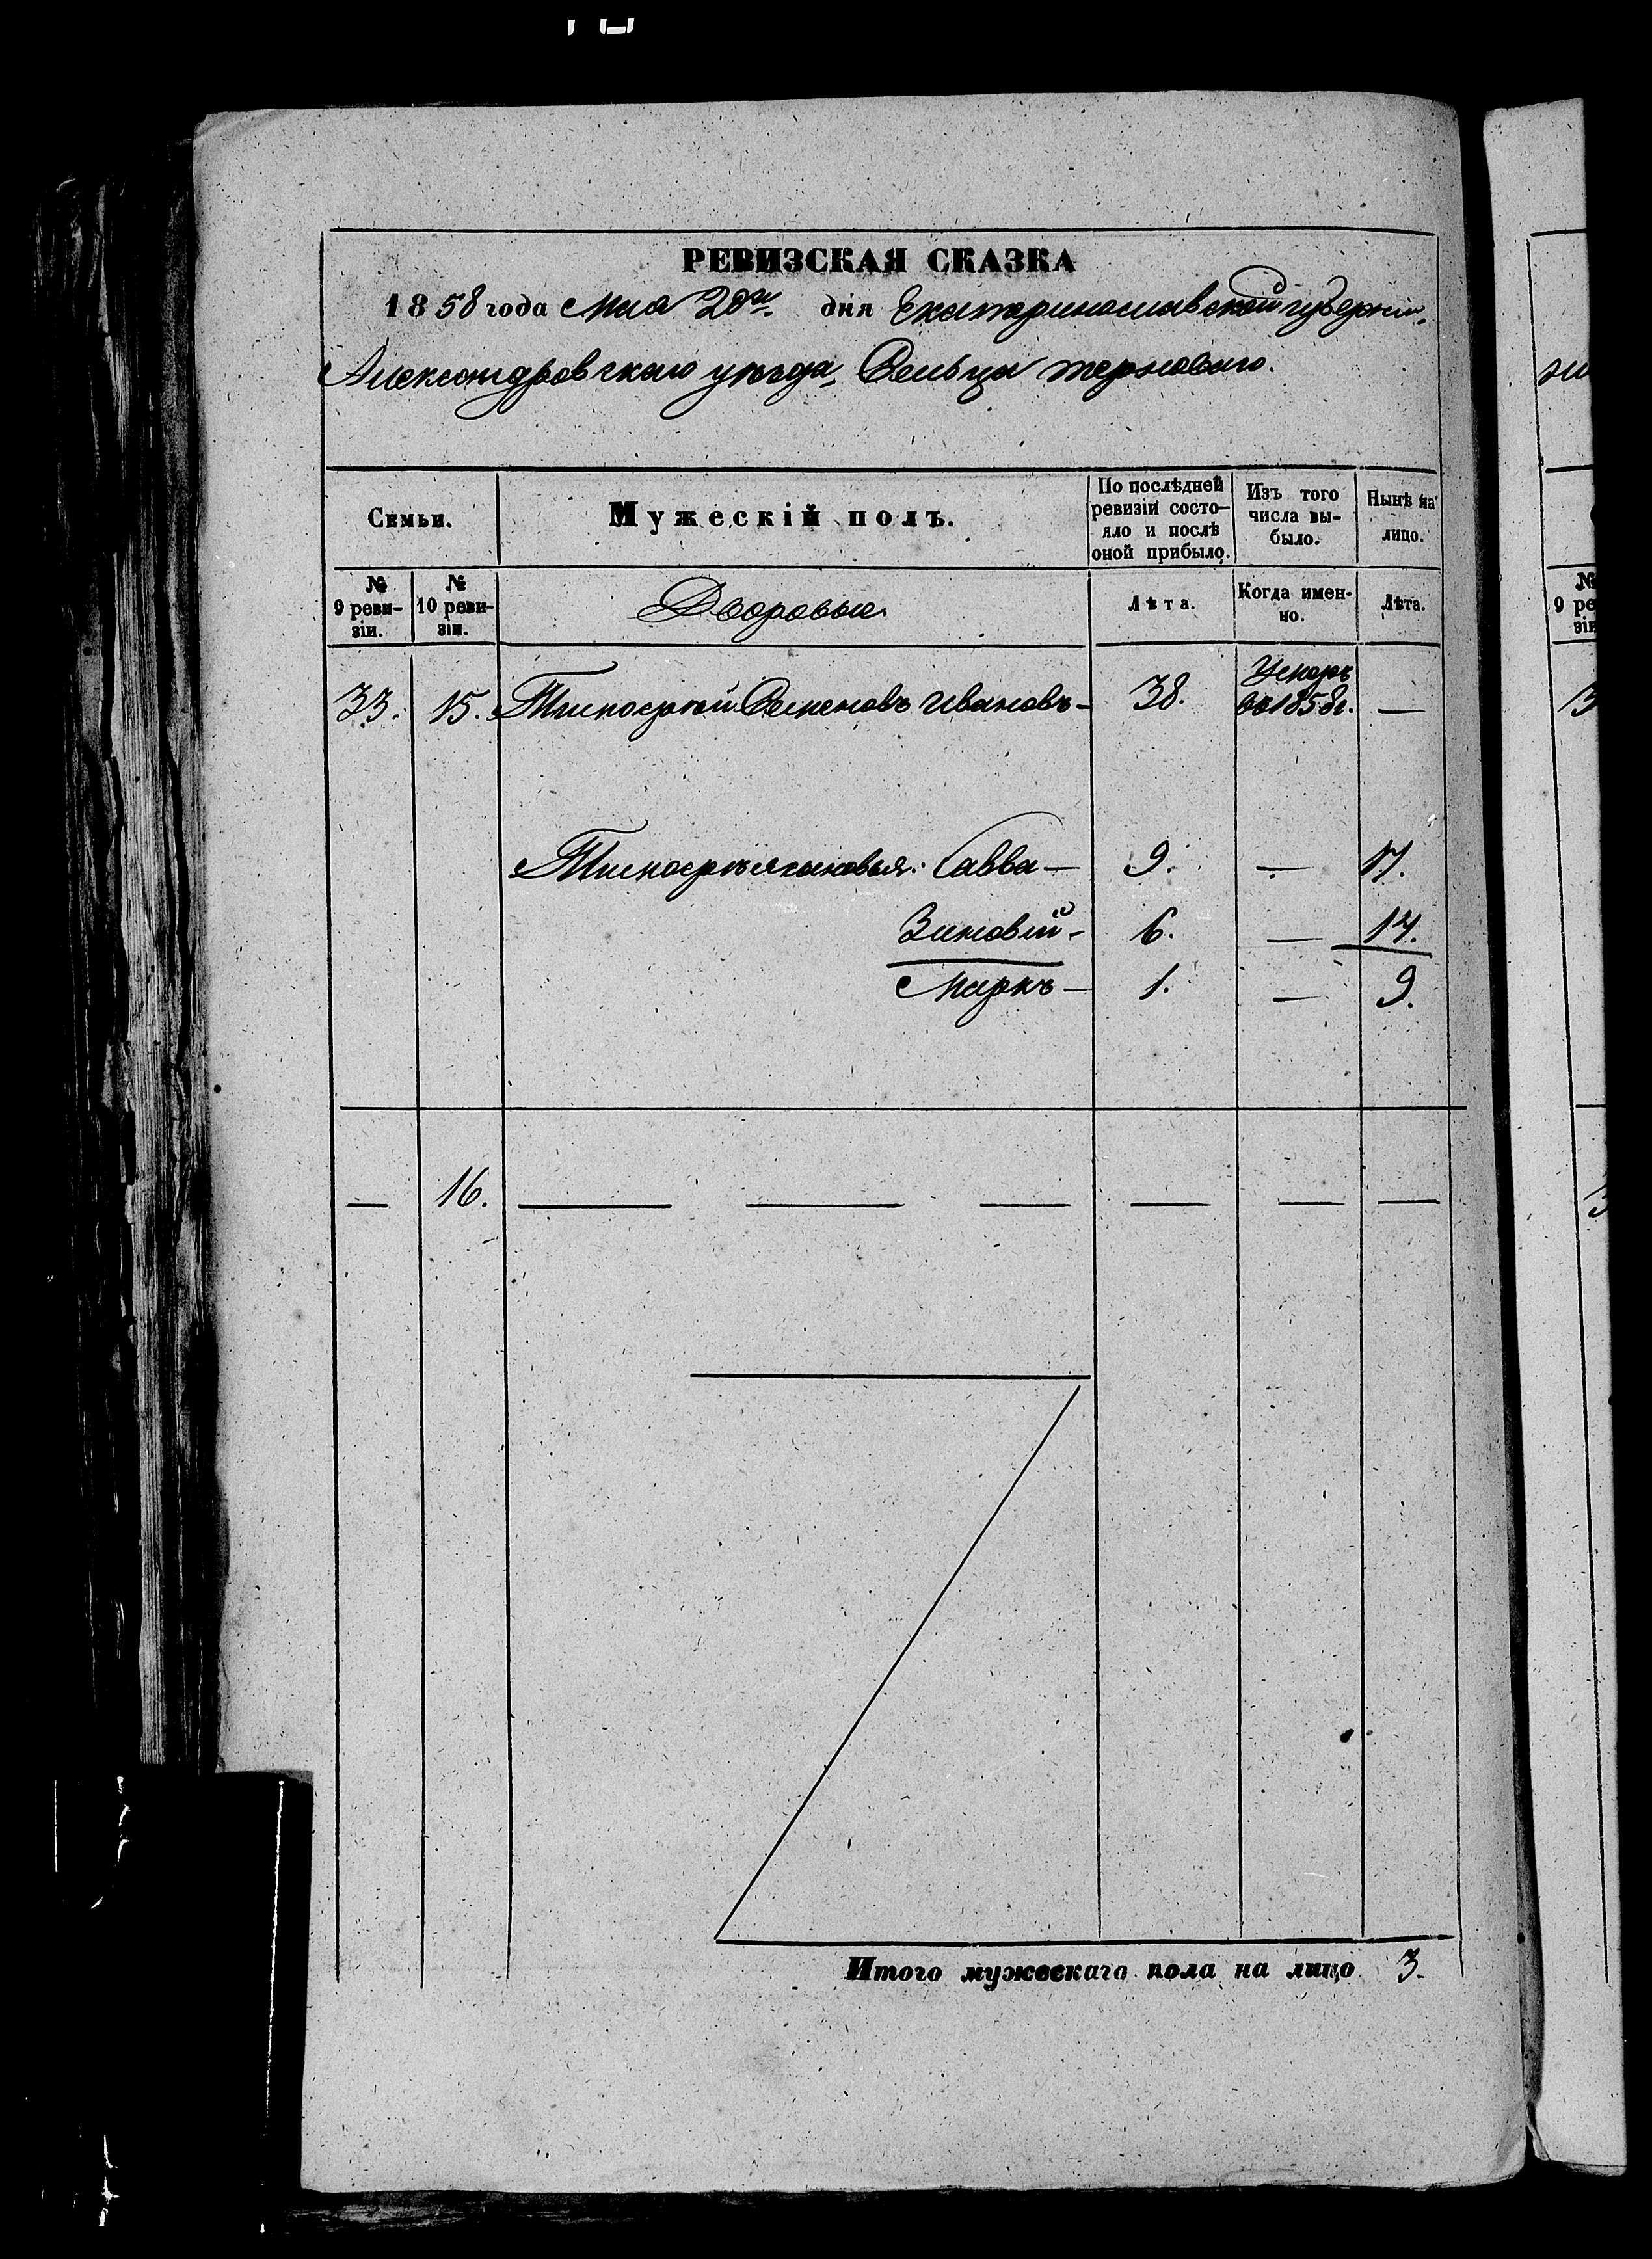 РЕВИЗСКАЯ СКАЗКА
1858 года Мая 28го. дня Екатеринославской губернии,
Александровскаго уѣзда, Сельца терноваго.
Семьи.
Мужескій полъ.
По послѣдней ревизіи состо-
яло и послѣ
оной прибыло.
Изъ того
числа вы-
было.
Нынѣ на
лицо.
№
9 реви-
зіи.
№
10 реви-
зіи.
Дворовые.
Лѣта.
Когда имен-
но.
Лѣта.
33. 15. Тимоѳей Семеновъ Ивановъ — 38. Умеръ —
въ 1858г.
Тимоѳея сыновья: Савва — 9. — 17.
Зиновій - 6. — 14.
Маркъ — 1. — 9.
— 16. — — — — — —
Итого мужескаго пола на лицо 3.
№
9 ре
зіи